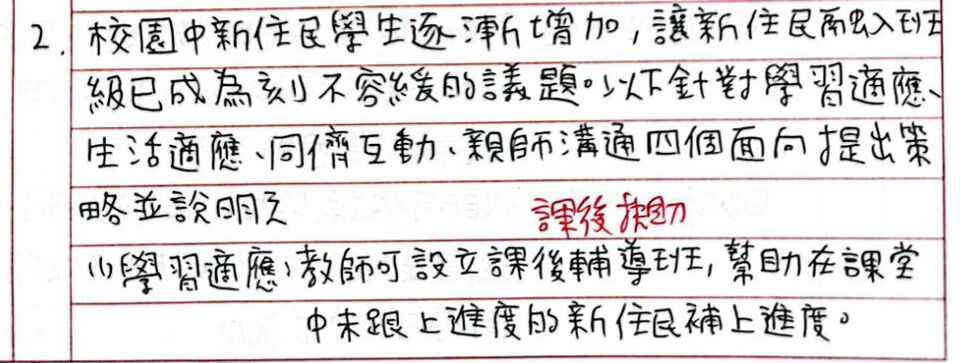 2. 校園中新住民學生逐漸增加，讓新住民融入班
級已成為刻不容緩的議題。以下針對學習適應、
生活適應、同儕互動、親師溝通四個面向提出策
略並說明之
課後扶助
(1)學習適應：教師可設立課後輔導班，幫助在課堂
中未跟上進度的新住民補上進度。